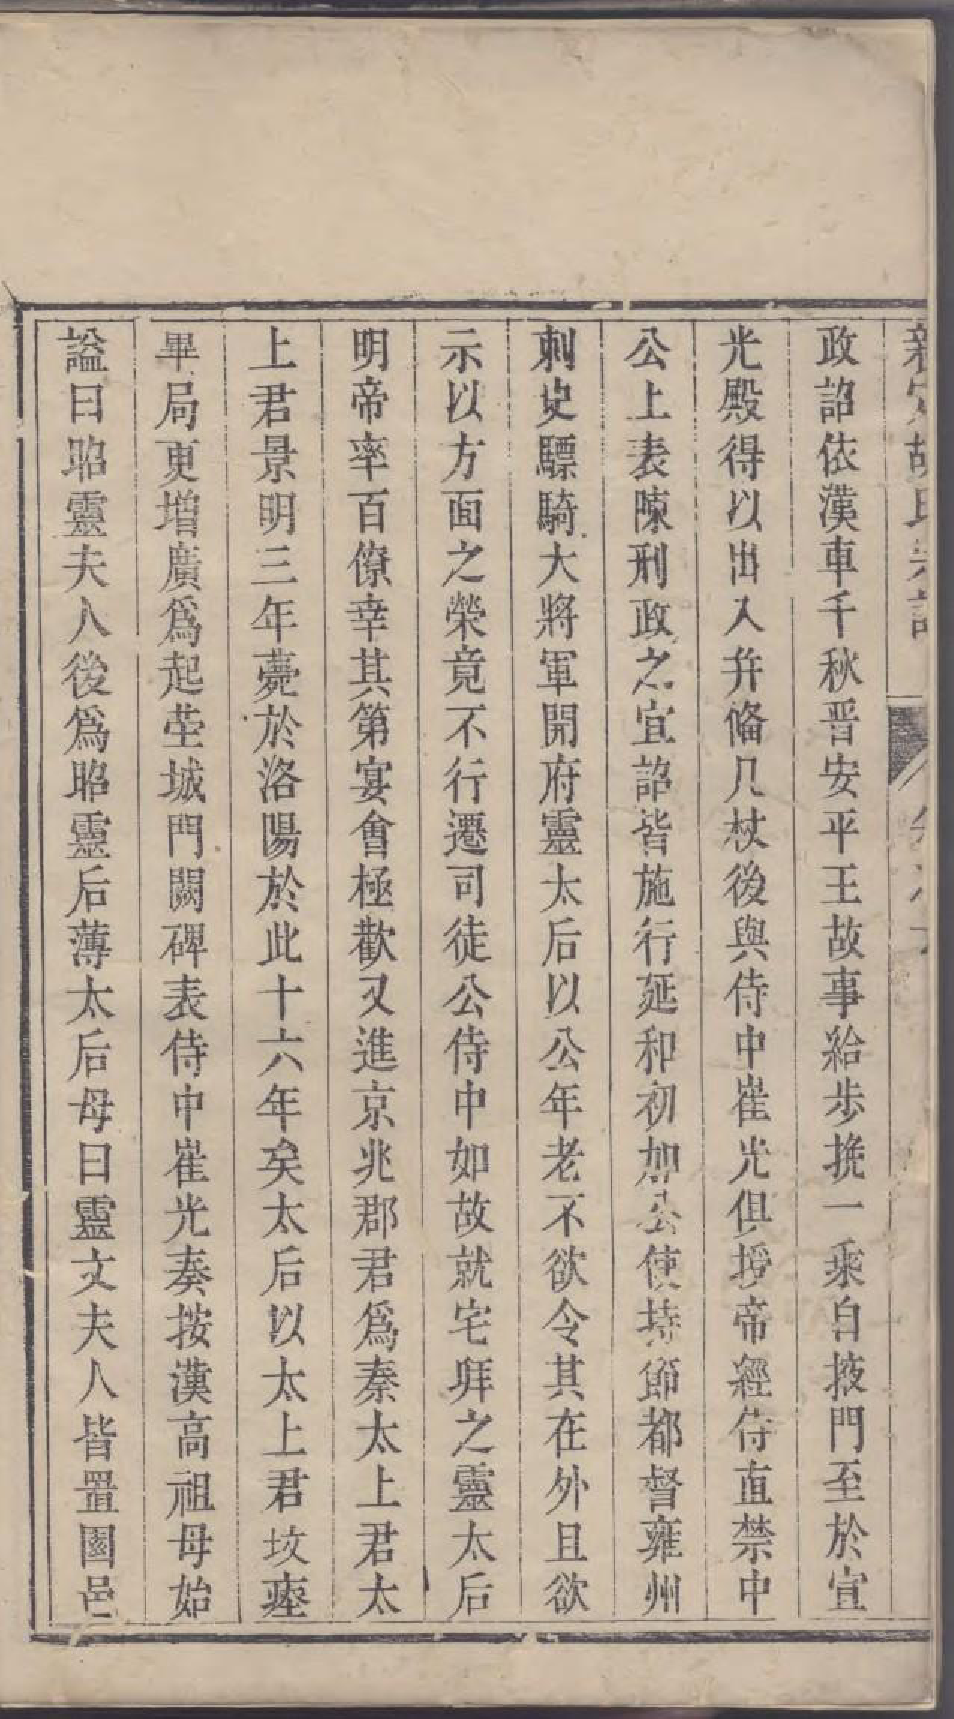 政詔依漢車千秋晋安平王故事給歩挽一乘自掖門至於宣
光殿得以出入幷俻几杖後與侍中崔光俱授帝經侍直禁中
公上表陳刑政之宜詔皆施行延和初加公使持節都督雍州
刺史驃騎大將軍開府靈太后以公年老不欲令其在外且欲
示以方面之榮竟不行遷司徒公侍中如故就宅拜之靈太后
明帝率百僚幸其第宴會極歡又進京兆郡君爲秦太上君太
上君景明三年薨於洛陽於此十六年矣太后以太上君坟瘞
卑局更增廣爲起塋城門闕碑表侍中崔光奏按漢高祖母始
謚曰昭靈夫人後爲昭靈后薄太后母曰靈文夫人皆置園邑